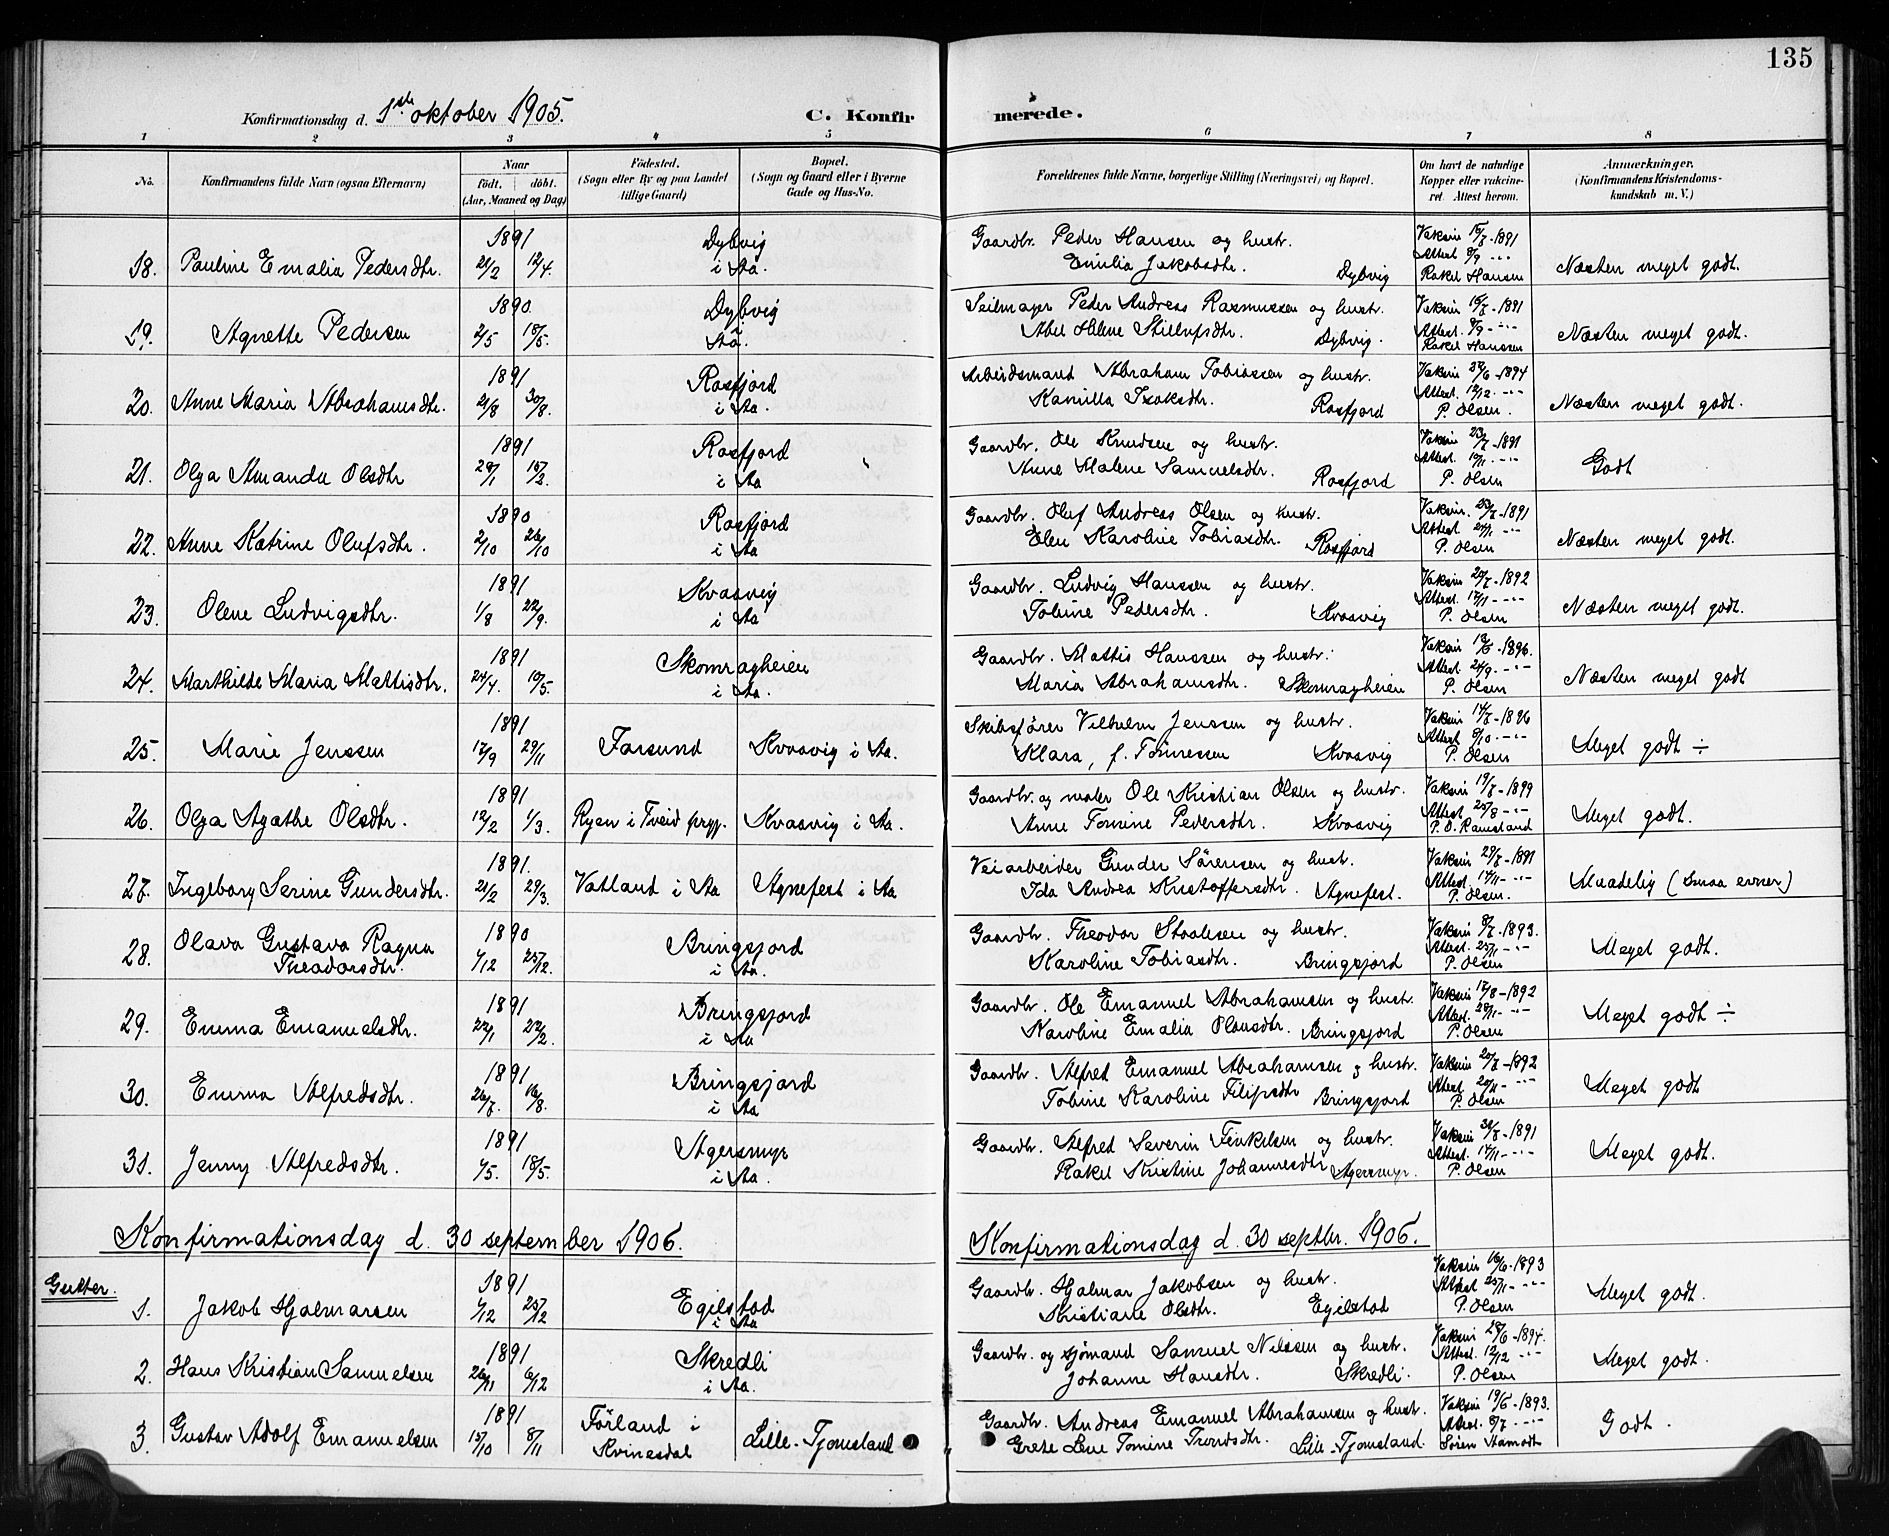 135
Konfirmationsdag d. 1ste oktober 1905.
C. Konfirmerede.
1 2 3 4 5 6 7 8
No. | Konfirmandens fulde Navn (ogsaa Efternavn) | Naar født. døbt. (Aar, Maaned og Dag) | Fødested. (Sogn eller By og paa Landet tillige Gaard) | Bopæl. (Sogn og Gaard eller i Byerne Gade og Hus-No. | Forældrenes fulde Navne, borgerlige Stilling (Næringsvei) og Bopæl. | Om havt de naturlige Kopper eller vakcineret. Attest herom. | Anmærkninger. (Konfirmandens Kristendomskundskab m. V.)
18. Pauline Emalia Pedersdtr. 1891 21/2 12/4. Dybvig i Aa. Gaardbr. Peder Hansen og hustr. Emilia Jakobsdtr. Dybvig Vaksin 1891 Attest 8/9 Rakel Hansen Næsten meget godt.
19. Agnette Pedersen 1890 2/5 18/5. Dybvig Aa. Seilmager Peder Andreas Rasmussen og hustr. Abel Helene Dybvig. Vaksin 1891 Attest 8/9 Rakel Hanssen Næsten meget godt.
20. Anne Maria Abrahamsdtr. 1891 21/8 30/8. Rosfjord i Aa. Arbeidsmand Abraham Tobiassen og hustr. Kamilla Isaksdtr. Rosfjord Vaksin 1894 Attest 12/12 P. Olsen Næsten meget godt.
21. Olga Amanda Olsdtr 1891 29/1 15/2. Rosfjord i Aa Gaardbr. Ole Knudsen og hustr. Anne Malene Samuelsdtr. Rosfjord Vaksin 23/7-1891 Attest P. Olsen Godt
22. Anne Katrine Olufsdtr. 1890 2/10 26/10 Rosfjord i Aa Gaardbr. Oluf Andreas Olsen og hustr. Elen Karoline Tobiasdtr. Rosfjord Vaksin. 23/7-1891 Attest P. Olsen Næsten meget godt.
23. Olene Ludvigsdtr. 1891 1/8 22/9. Kvaavig i Aa Gaardbr. Ludvig Hanssen og hustr. Tobine Pedersdtr. Kvaavig Vaksin 20/7-1892 Attest P. Olsen Næsten meget godt.
24. Marthilde Maria Mattisdtr. 1891 24/4. 10/5. Skomragheien i Aa. Gaardbr. Mattis Hanssen og hustr. Maria Abrahamsdtr. Skomragheien Vaksin 1896. Attest 24/9 P. Olsen Næsten meget godt
25. Marie Jenssen 1891 17/9 29/11 Farsund Kvaavig i Aa. Skibsfører Vilhelm Jenssen og hustr. Klara, f. Tønnessen Kvaavig Vaksin 1896 Attest P. Olsen Meget godt ÷
26. Olga Agathe Olsdtr. 1891 12/2 1/3. Ryen i Tveid prgj. Kvaavig i Aa. Gaardbr. og maler Ole Kristian Olsen og hustr. Anne Tomine Pedersdtr. Kvaavig Vaksin 1899 Attest 25/8 P. O. Ramsland Meget godt.
27. Ingeborg Serine Gundersdtr. 1891. 21/2 29/3. Vatland i Aa Agnefest i Aa Veiarbeider Gunder Sørensen og hustr. Ida Andrea Kristoffersdtr. Agnefest. Vaksin 1891 Attest P. Olsen. Maadelig (smaa evner)
28. Olava Gustava Ragna Theodorsdtr. 1890 1/12 25/12. Bringsjord i Aa. Gaardbr. Theodor Staalesen og hustr. Karoline Tobiasdtr. Bringsjord Vaksin 8/7-1893. Attest 25/11 P. Olsen Meget godt.
29. Emma Emanuelsdtr. 1891 22/1 22/2. Bringsjord i Aa Gaardbr. Ole Emanuel Abrahamsen og hustr. Karoline Emalia Olausdtr. Bringsjord Vaksin 17/8-1892 Attest P. Olsen Meget godt ÷
30. Emma Alfredsdtr. 1891 26/7. 16/8. Bringsjord i Aa Gaardbr. Alfred Emanuel Abrahamsen og hustr. Tobine Karoline Filipsdtr Bringsjord Vaksin 20/7-1892 Attest P. Olsen Meget godt.
31. Jenny Alfredsdtr. 1891 1/5. 18/5. Agersmyr i Aa. Gaardbr. Alfred Severin Tenkelsen og hustr. Rakel Kristine Johannesdtr Agersmyr. Vaksin 1891 Attest P. Olsen Meget godt.
Konfirmationsdag d. 30 september 1906.
Konfirmationsdag d. 30 septbr. 1906.
Gutter.
1. Jakob Hjalmarsen 1891 1/12 25/12 Egilstad i Aa Gaardbr. Hjalmar Jakobsen og hustr. Kristiane Olsdtr. Egilstad Vaksin 1893 Attest 25/11 P. Olsen Meget godt.
2. Hans Kristian Samuelsen 1891 26/11 6/12 Skredli i Aa. Gaardbr. og sjømand Samuel Nilssen og hustr. Johanne Hansdtr. Skredli. Vaksin 28/6-1894. Attest 12/12 P. Olsen Meget godt.
3. Gustav Adolf Emanuelsen 1891 15/10 8/11 Førland i Kvinesdal Lille-Tjomsland Gaardbr. Andreas Emanuel Abrahamsen og hustr. Grete Lene Tomine Trondsdtr. Lille-Tjomsland. Vaksin 19/6-1893. Attest 8/7 Søren Stamodt Godt.